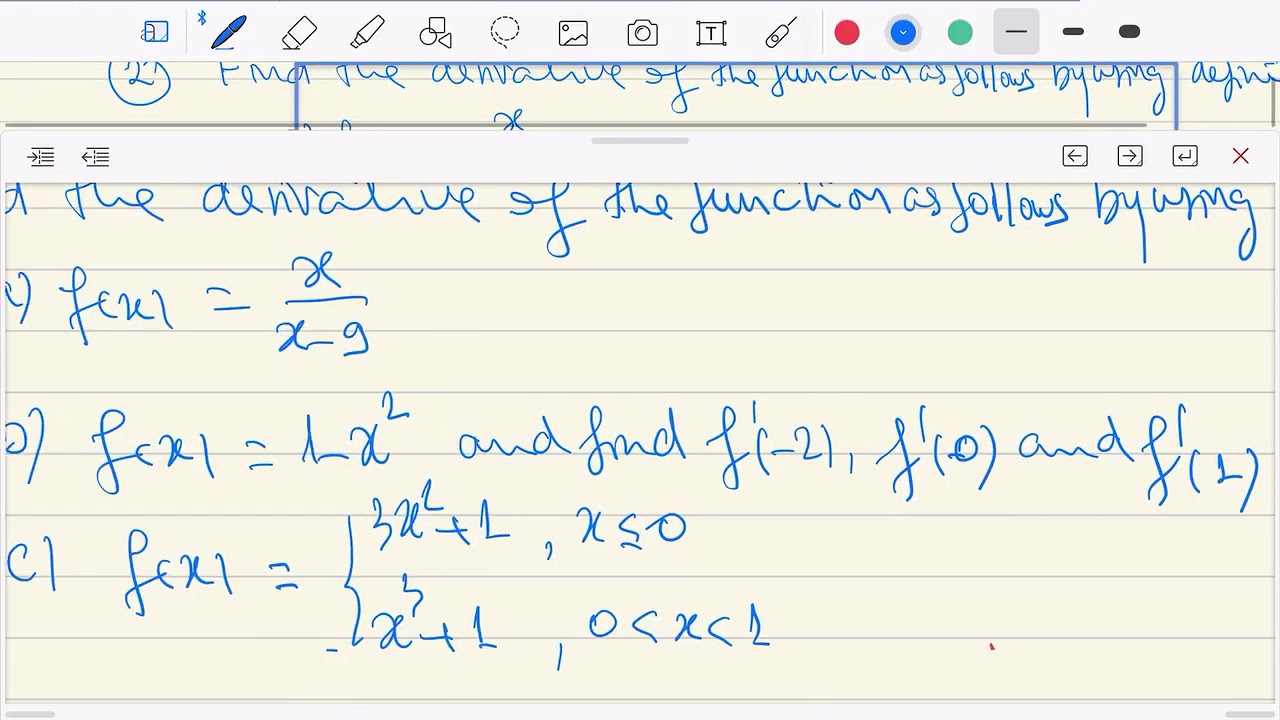 (2) Find the derivative of the function as follows by using defini
x
d the derivative of the function as follows by using
f(x) = x/(x-9)
b) f(x) = 1-x² and find f'(-2), f'(0) and f'(1)
c) f(x) = { 3x²+1 , x≤0
x³+1 , 0<x<1